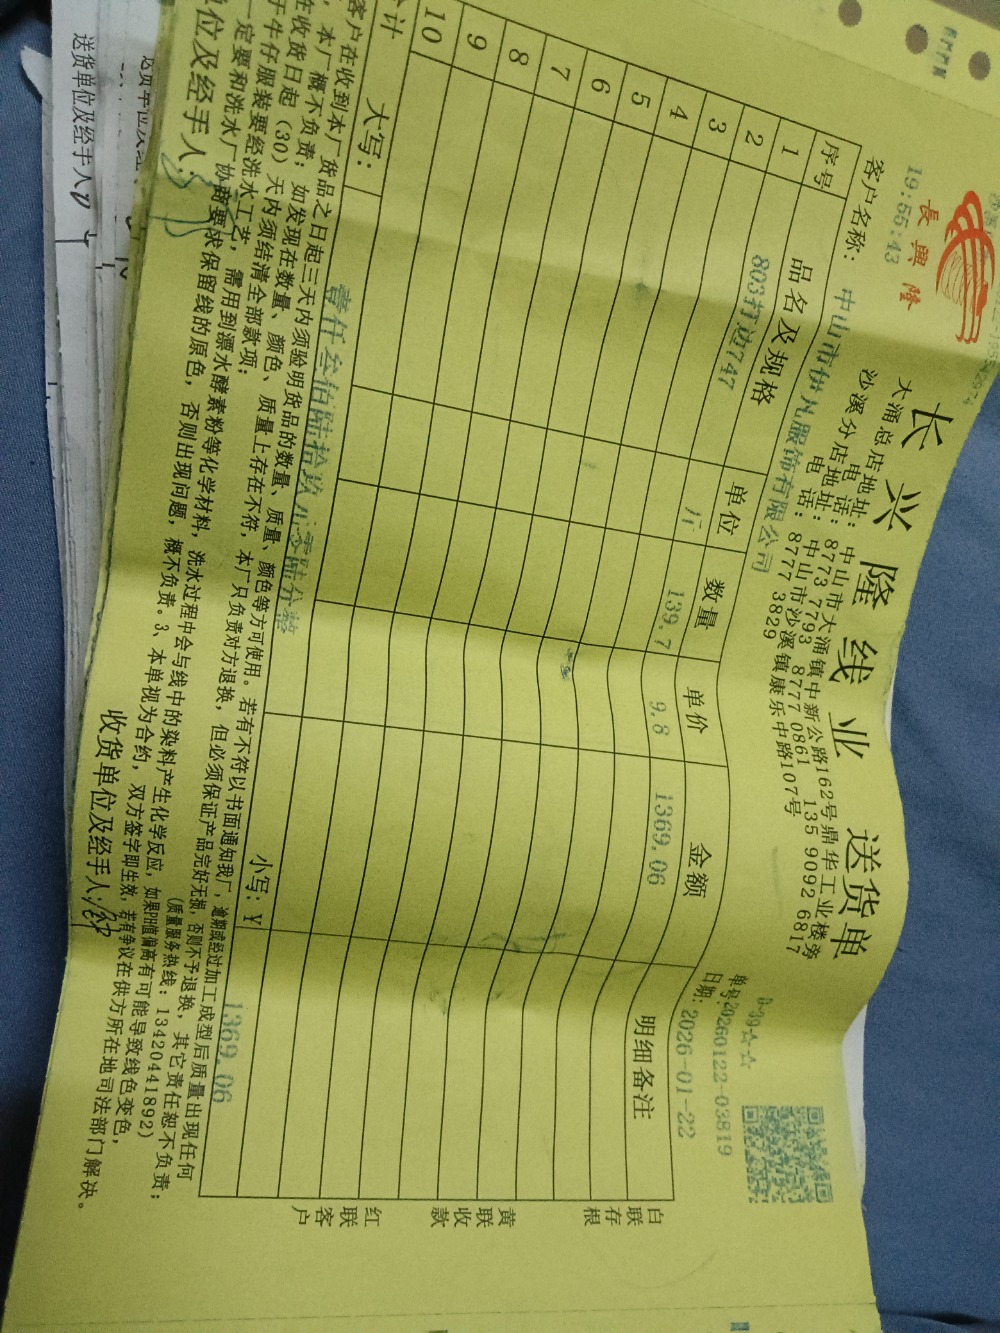 長興隆
19:55:43
长兴隆线业 送货单
大涌总店地址：中山市大涌镇中新公路162号鼎华工业楼旁
电话：8773 7793 8777 0861 135 9092 6817
沙溪分店地址：中山市沙溪镇康乐中路107号
电话：8777 3829
单号20260122-03819
客户名称：中山市伊凡服饰有限公司
日期：2026-01-22
序号 品名及规格 单位 数量 单价 金额 明细备注
1 803打边747 斤 139.7 9.8 1369.06
2
3
4
5
6
7
8
9
10
合计 大写：壹仟叁佰陆拾玖元零陆分整 小写：¥ 1369.06
白联存根
黄联收款
红联客户
客户在收到本厂货品之日起三天内须验明货品的数量、质量、颜色等方可使用。若有不符以书面通知我厂，逾期或经过加工成型后质量出现任何
，本厂概不负责；如发现在数量、颜色、质量上存在不符，本厂只负责对方退换，但必须保证产品完好无损，否则不予退换，其它责任恕不负责；
在收货日起（30）天内须结清全部款项； （质量服务热线：13420441892）
于牛仔服装要经洗水工艺，需用到漂水酵素粉等化学材料，洗水过程中会与线中的染料产生化学反应，如果PH值偏高有可能导致线色变色，
一定要和洗水厂协商要求保留线的原色，否则出现问题，概不负责。3、本单视为合约，双方签字即生效，若有争议在供方所在地司法部门解决。
单位及经手人： 收货单位及经手人：
送货单位及经手人
送货单位及经